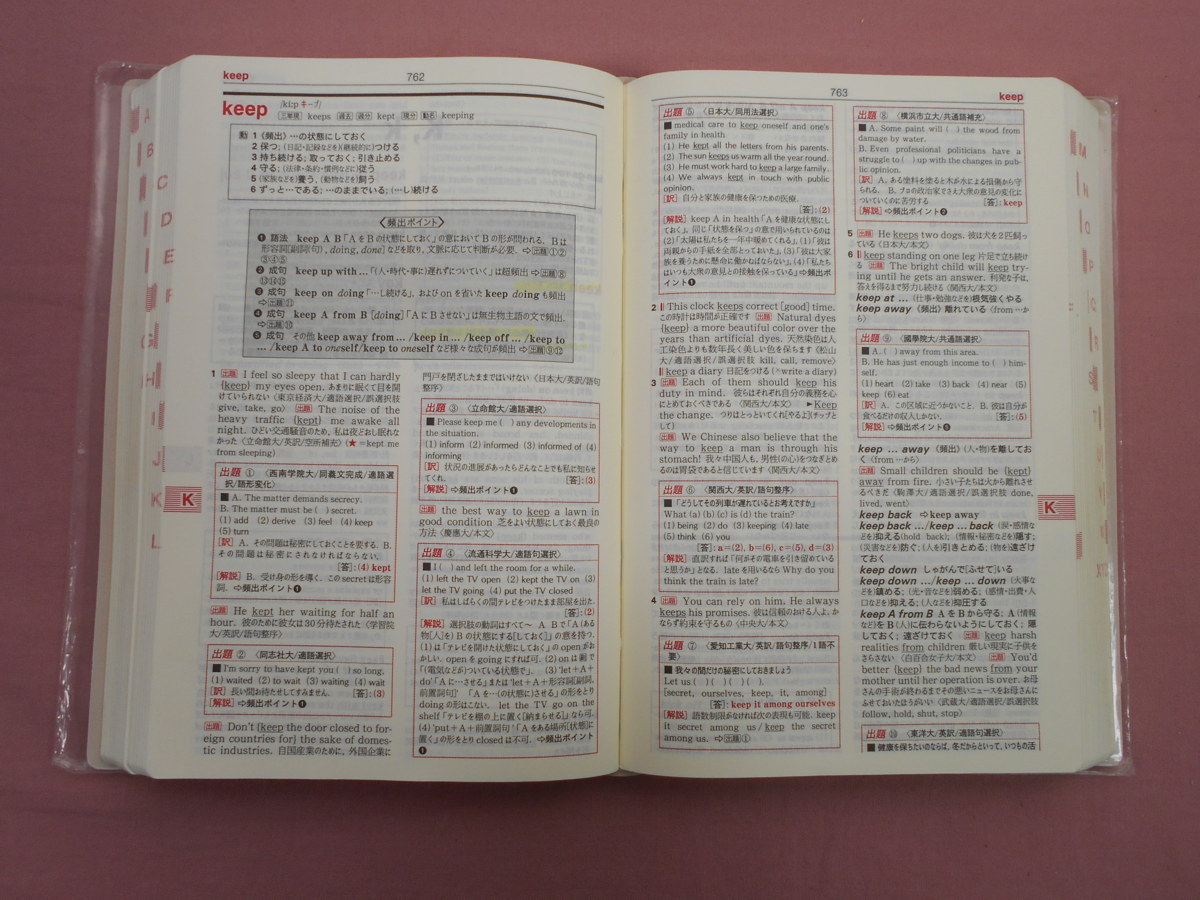 keep
762
keep /kiːp キープ/
三単現 keeps 過去 過分 kept 現分 動名 keeping
動 1 《頻出》…の状態にしておく
2 保つ；(日記・記録などを)(継続的に)つける
3 持ち続ける；取っておく；引き止める
4 守る；(法律・条約・慣例などに)従う
5 (家族などを)養う，(動物などを)飼う
6 ずっと…である；…のままでいる；(…し)続ける
〈頻出ポイント〉
❶ 語法 keep A B「AをBの状態にしておく」の意においてBの形が問われる．Bは
形容詞[副詞句]，doing, done]などを取り，文脈に応じて判断が必要．⇨出題①②
③④⑤
❷ 成句 keep up with …「(人・時代・事に)遅れずついていく」は超頻出 ⇨出題⑧
❸ 成句 keep on doing「…し続ける」，および on を省いた keep doing も頻出
❹ 成句 keep A from B [doing]「AにBさせない」は無生物主語の文で頻出．
❺ 成句 その他 keep away from … /keep in … /keep off … /keep to
… /keep A to oneself/keep to oneself など様々な成句が頻出 ⇨出題⑨⑫
1 出題 I feel so sleepy that I can hardly
(keep) my eyes open. あまりに眠くて目を開
けていられない〈東京経済大/適語選択/誤選択肢
give, take, go〉 出題 The noise of the
heavy traffic (kept) me awake all
night. ひどい交通騒音のため，私は夜どおし眠れな
かった〈立命館大/英訳/空所補充〉(★＝kept me
from sleeping)
出題 ① 〈西南学院大/同義文完成/適語選
択/語形変化〉
■ A. The matter demands secrecy.
B. The matter must be ( ) secret.
(1) add (2) derive (3) feel (4) keep
(5) turn
［訳］A．その問題は秘密にしておくことを要する．B．
その問題は秘密にされなければならない．
[答]：(4) kept
［解説］B．受け身の形を導く．この secret は形容
詞．⇨頻出ポイント❶
出題 He kept her waiting for half an
hour. 彼のために彼女は30分待たされた〈学習院
大/英訳/語句整序〉
出題 ② 〈同志社大/適語選択〉
■ I'm sorry to have kept you ( ) so long.
(1) waited (2) to wait (3) waiting (4) wait
［訳］長い間お待たせしてすみません． [答]：(3)
［解説］⇨頻出ポイント❶
出題 Don't (keep the door closed to for-
eign countries for) the sake of domes-
tic industries. 自国産業のために，外国企業に
門戸を閉ざしたままではいけない〈日本大/英訳/語句
整序〉
出題 ③ 〈立命館大/適語選択〉
■ Please keep me ( ) any developments in
the situation.
(1) inform (2) informed (3) informed of (4)
informing
［訳］状況の進展があったらどんなことでも私に知らせ
てくれ． [答]：(3)
［解説］⇨頻出ポイント❶
出題 the best way to keep a lawn in
good condition 芝をよい状態にしておく最良の
方法〈慶應大/本文〉
出題 ④ 〈流通科学大/適語句選択〉
■ I ( ) and left the room for a while.
(1) left the TV open (2) kept the TV on (3)
let the TV going (4) put the TV closed
［訳］私はしばらくの間テレビをつけたまま部屋を出た．
[答]：(2)
［解説］選択肢の動詞はすべて～ A B で「A(ある
物[人]を) B の状態にする[しておく]」の意を持つ．
(1)は「テレビを開けた状態にしておく」の open がお
かしい．open を going にすれば可．(2) on は副で
「電気などがついている状態で」．(3) ‘let＋A＋
do’「A に…させる」または‘let＋A＋形容詞[副詞，
前置詞句]’ 「A を…(の状態に)させる」の形をとり
doing の形はこない．let the TV go on the
shelf「テレビを棚の上に置く[納まらせる]」なら可．
(4) ‘put＋A＋前置詞句’「A をある場所[状態]に
置く」の形をとり closed は不可．⇨頻出ポイント
❶
K
763
keep
出題 ⑤ 〈日本大/同用法選択〉
■ medical care to keep oneself and one's
family in health
(1) He kept all the letters from his parents.
(2) The sun keeps us warm all the year round.
(3) He must work hard to keep a large family.
(4) We always kept in touch with public
opinion.
［訳］自分と家族の健康を保つための医療．
[答]：(2)
［解説］keep A in health「A を健康な状態にし
ておく」．同じ「状態を保つ」の意で用いられているのは
(2)「太陽は私たちを一年中暖めてくれる」．(1)「彼は
両親からの手紙を全部とっておいた」(3)「彼は大家
族を養うために懸命に働かねばならない」．(4)「私たち
はいつも大衆の意見との接触を保っている」⇨頻出ポ
イント❶
2 This clock keeps correct [good] time.
この時計は時間が正確です 出題 Natural dyes
(keep) a more beautiful color over the
years than artificial dyes. 天然染色は人
工染色よりも数年長く美しい色を保ちます〈松山
大/適語選択/誤選択肢 kill, call, remove〉
keep a diary 日記をつける(×write a diary)
3 出題 Each of them should keep his
duty in mind. 彼らはそれぞれ自分の義務を心
にとめておくべきである〈関西大/本文〉 ►Keep
the change. つりはとっといてくれ[やるよ](チップと
して)
出題 We Chinese also believe that the
way to keep a man is through his
stomach! 我々中国人も，男性(の心)をつなぎとめ
るのは胃袋であると信じています〈関西大/本文〉
出題 ⑥ 〈関西大/英訳/語句整序〉
■「どうしてその列車が遅れているとお考えですか」
What (a) (b) (c) is (d) the train?
(1) being (2) do (3) keeping (4) late
(5) think (6) you
[答]：a＝(2), b＝(6), c＝(5), d＝(3)
［解説］直訳すれば「何がその電車を引き留めている
と思うか」となる．late を用いるなら Why do you
think the train is late?
4 出題 You can rely on him. He always
keeps his promises. 彼は信頼のおける人よ，か
ならず約束を守るもの〈中央大/本文〉
出題 ⑦ 〈愛知工業大/英訳/語句整序/1語不
要〉
■ 我々の間だけの秘密にしておきましょう
Let us ( )( )( )( ).
[secret, ourselves, keep, it, among]
[答]：keep it among ourselves
［解説］語数制限がなければ次の表現も可能．keep
it secret among us / keep the secret
among us. ⇨出題①
出題 ⑧ 〈横浜市立大/共通語補充〉
■ A. Some paint will ( ) the wood from
damage by water.
B. Even professional politicians have a
struggle to ( ) up with the changes in pub-
lic opinion.
［訳］A．ある塗料を塗ると木が水による損傷から守
られる． B．プロの政治家でさえ大衆の意見の変化に
ついていくのに苦労する [答]：keep
［解説］⇨頻出ポイント❷
5 出題 He keeps two dogs. 彼は犬を2匹飼っ
ている〈日本大/本文〉
6 keep standing on one leg 片足で立ち続け
る 出題 The bright child will keep try-
ing until he gets an answer. 利発な子は，
答えを得るまで努力し続ける〈関西大/本文〉
keep at … (仕事・勉強などを)根気強くやる
keep away 《頻出》離れている《from …か
ら》
出題 ⑨ 〈國學院大/共通語選択〉
■ A. ( ) away from this area.
B. He has just enough income to ( ) him-
self.
(1) heart (2) take (3) back (4) near (5)
keep (6) eat
［訳］A．この区域に近づかないこと．B．彼は自分が
食べてるだけの収入しかない． [答]：(5)
［解説］⇨頻出ポイント❺
keep … away 《頻出》(人・物)を離してお
く《from …から》
出題 Small children should be (kept)
away from fire. 小さい子たちは火から離れさせ
るべきだ〈駒澤大/適語選択/誤選択肢 done,
lived, went〉
keep back ⇨keep away
keep back …/keep … back (涙・感情な
ど)を抑える(hold back)；(情報・秘密など)を隠す；
(災害など)を防ぐ；(人を)引きとめる；(物を)遠ざけ
ておく
keep down しゃがんで[ふせて]いる
keep down …/keep … down (火事な
ど)を鎮める；(光・音など)を弱める；(感情・出費・人
口など)を抑える；(人など)を抑圧する
keep A from B AをBから守る；A(情報
など)をB(人)に伝わらないようにしておく；隠
しておく；遠ざけておく 出題 keep harsh
realities from children 厳しい現実に子供を
さらさない〈白百合女子大/本文〉 出題 You'd
better (keep) the bad news from your
mother until her operation is over. お母
さんの手術が終わるまでその悪いニュースをお母さんに
ふせておいたほうがいい〈武蔵大/適語選択/誤選択肢
follow, hold, shut, stop〉
出題 ⑩ 〈東洋大/英訳/適語句選択〉
■ 健康を保ちたいのならば，冬だからといって，いつもの活
K